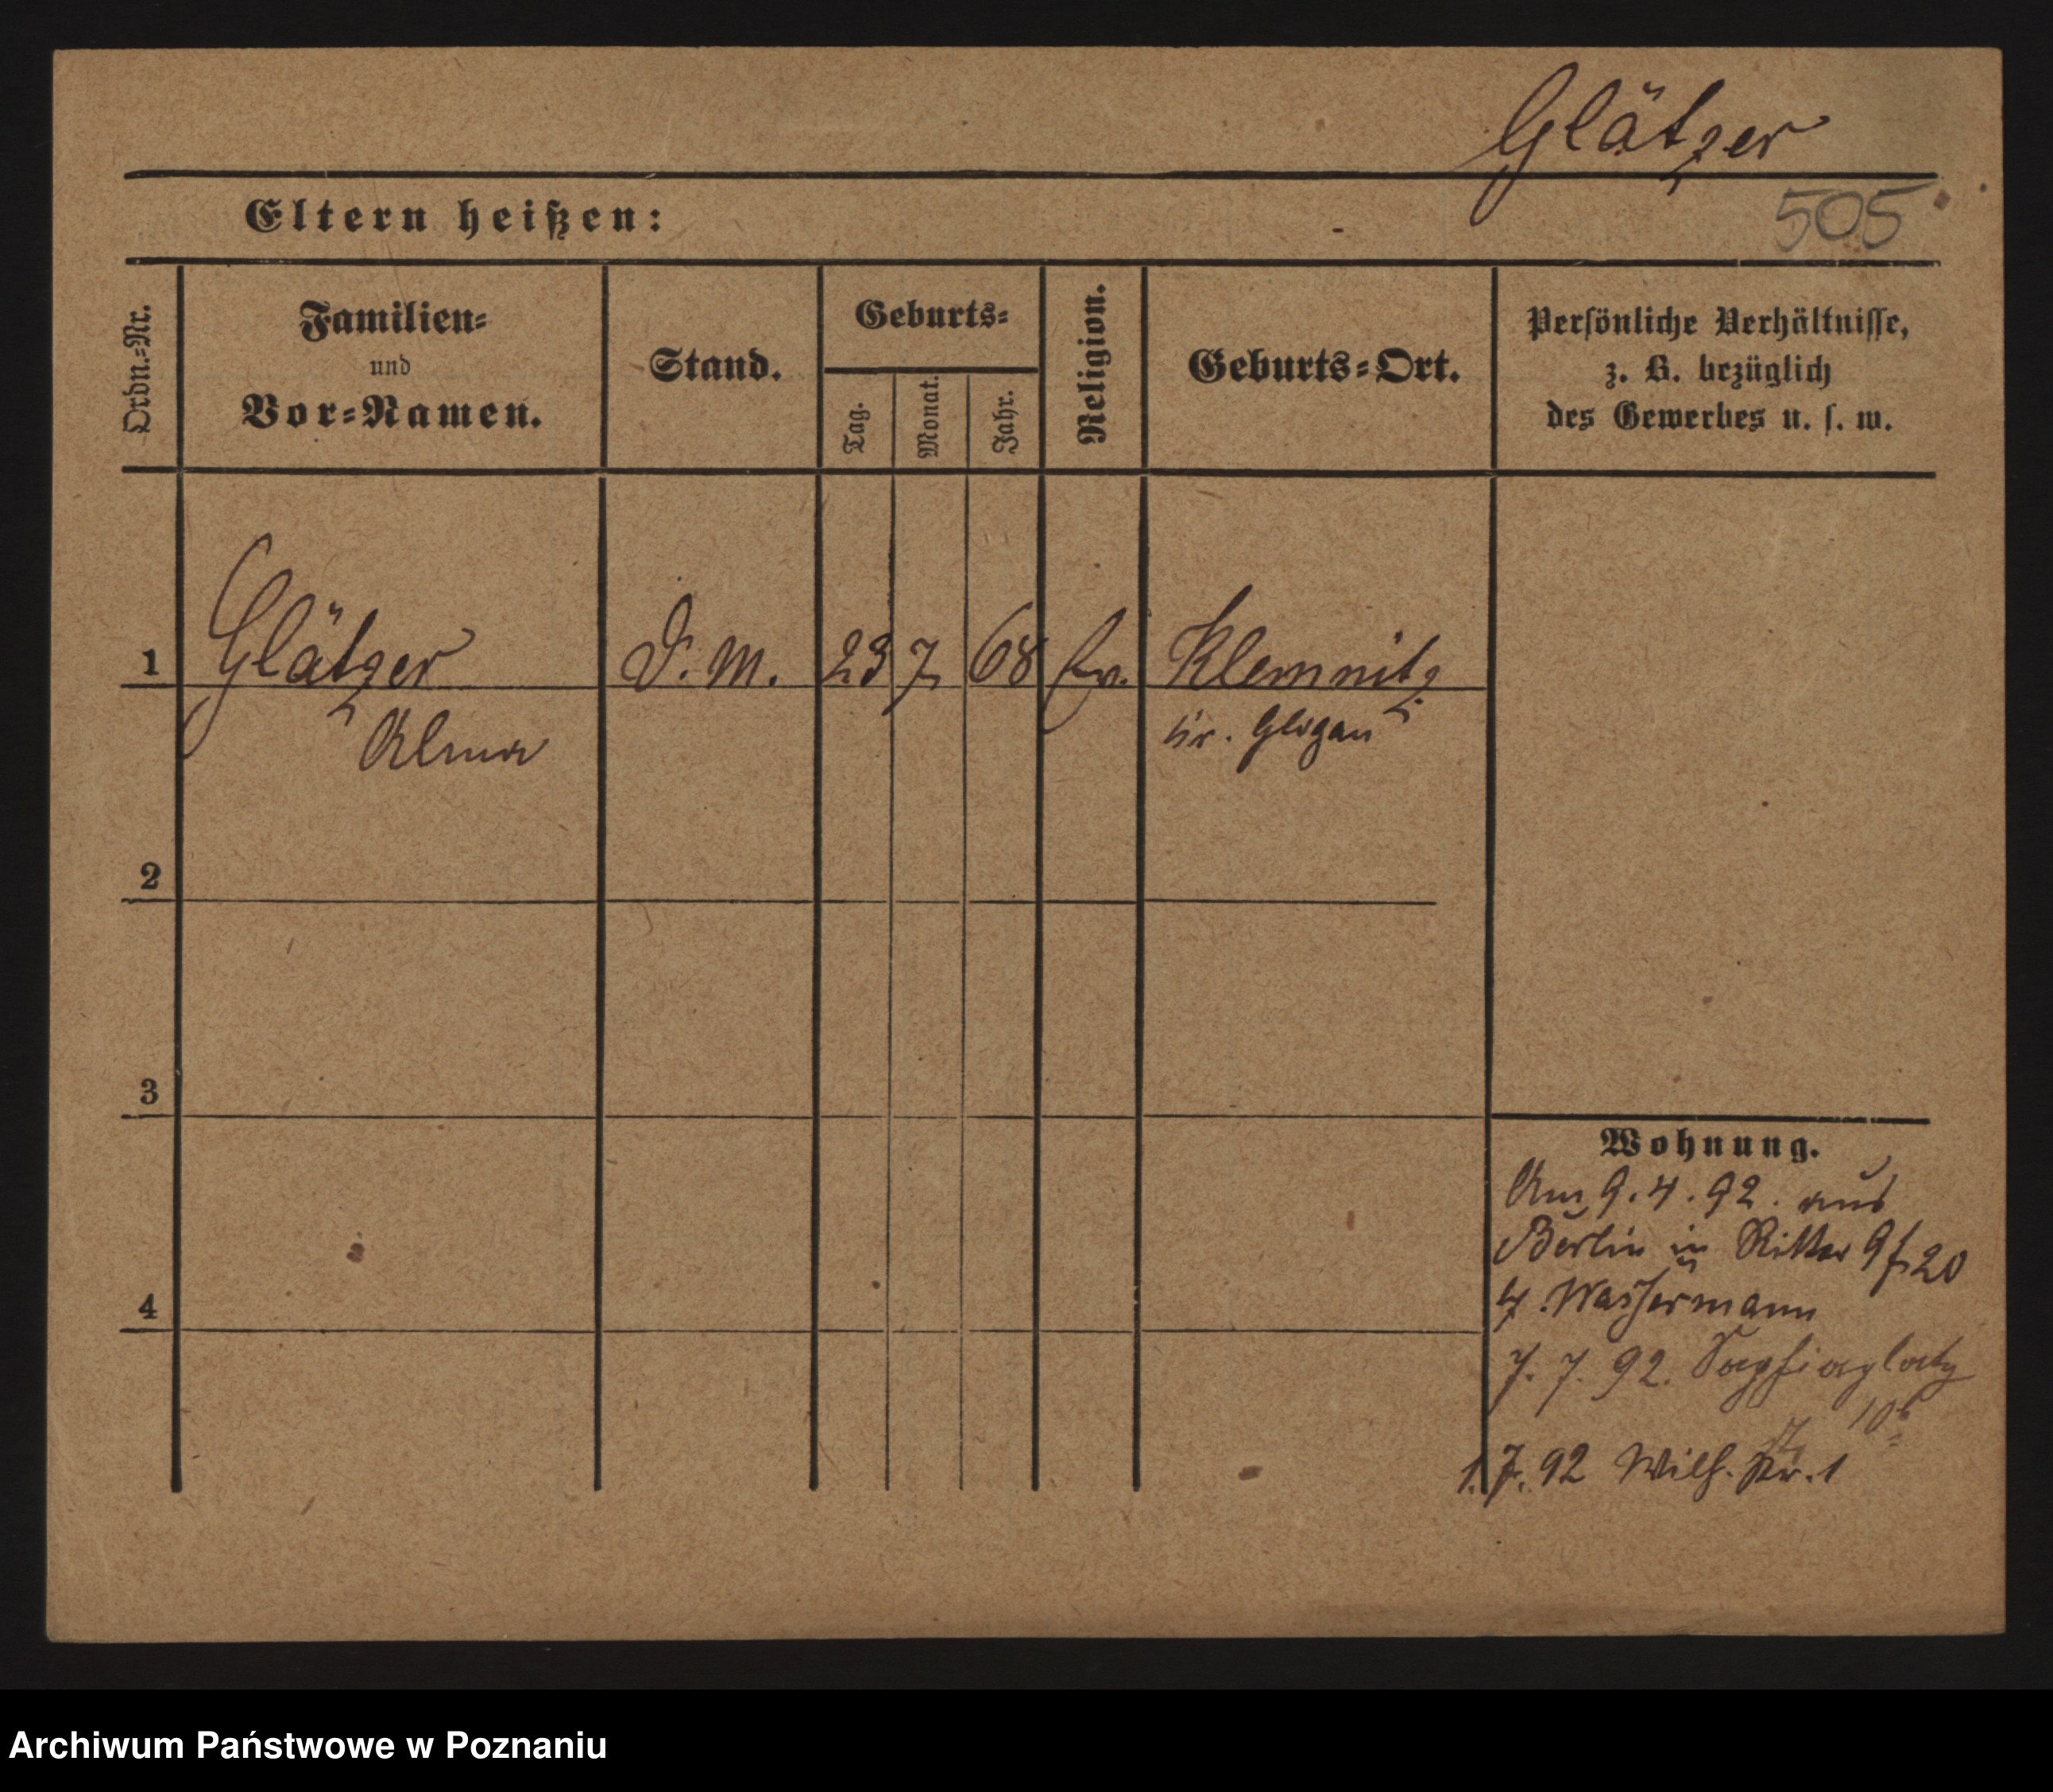 Glätzer
Eltern heißen:
505
Ordn.=Nr.
Familien=
und
Vor=Namen.
Stand.
Geburts=
Tag.
Monat.
Jahr.
Religion.
Geburts=Ort.
Persönliche Verhältnisse,
z. B. bezüglich
des Gewerbes u. s. w.
1 Glätzer D. M. 23 7 68 Ev. Klemnitz
Alma Kr. Glogau
2
3
4
Wohnung.
Am 9.4.92. aus
Berlin in Ritter 20
Wassermann
7. 7. 92.
10
1.7.92 Wilh. Str. 1
Archiwum Państwowe w Poznaniu